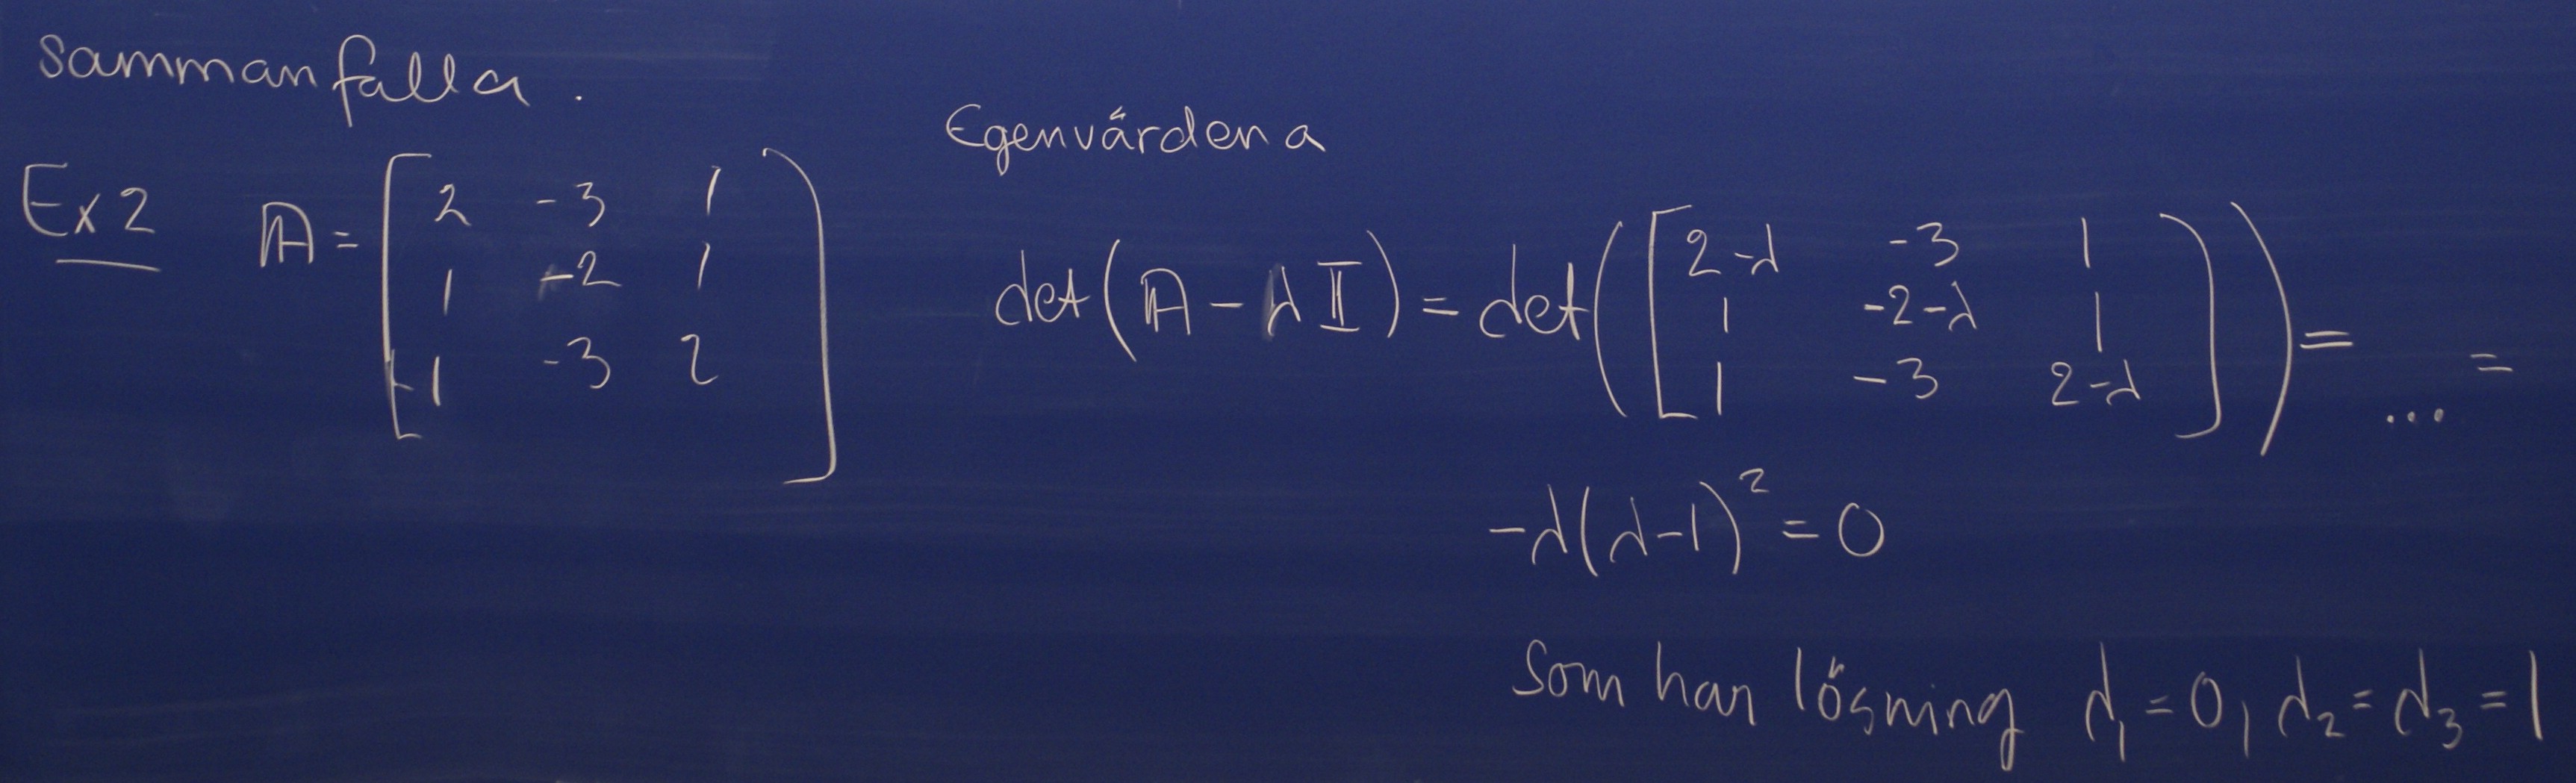 Sammanfalla.
Ex 2 A = [ 2 -3 1
1 -2 1
1 -3 2 ]
Egenvärdena
det(A - λI) = det([ 2-λ -3 1
1 -2-λ 1
1 -3 2-λ ]) = ... =
-λ(λ-1)² = 0
Som har lösning λ₁ = 0, λ₂ = λ₃ = 1